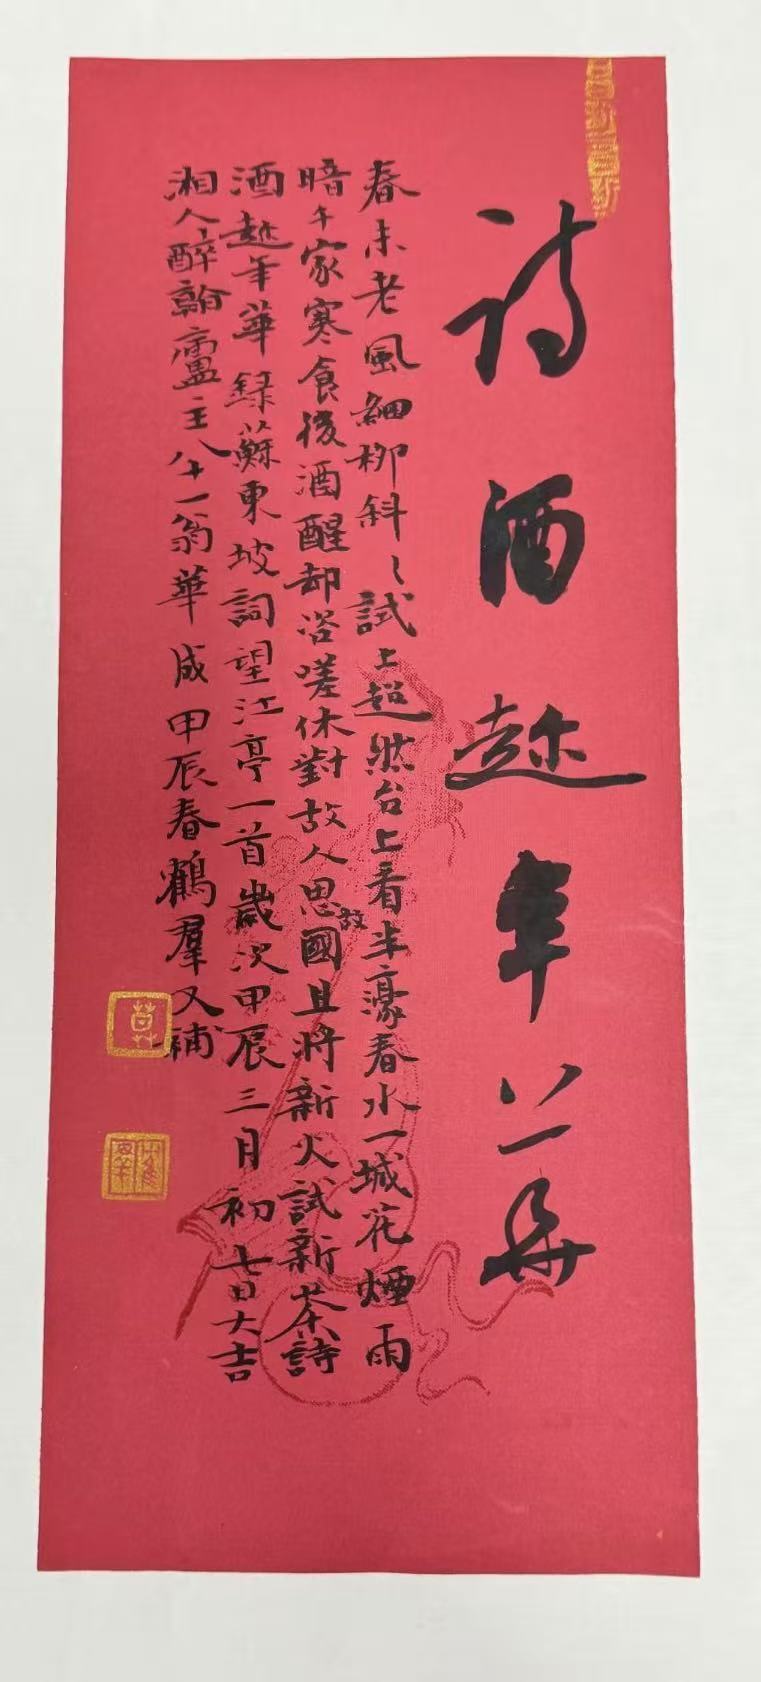 詩酒趂年華
春未老風細柳斜〻試上超然台上看半濠春水一城花煙雨
暗千家寒食後酒醒却咨嗟休對故人思故國且將新火試新茶詩
酒趂年華錄蘇東坡詞望江亭一首歲次甲辰三月初七日大吉
湘人醉翰廬主八十一翁華成甲辰春鶴羣又補